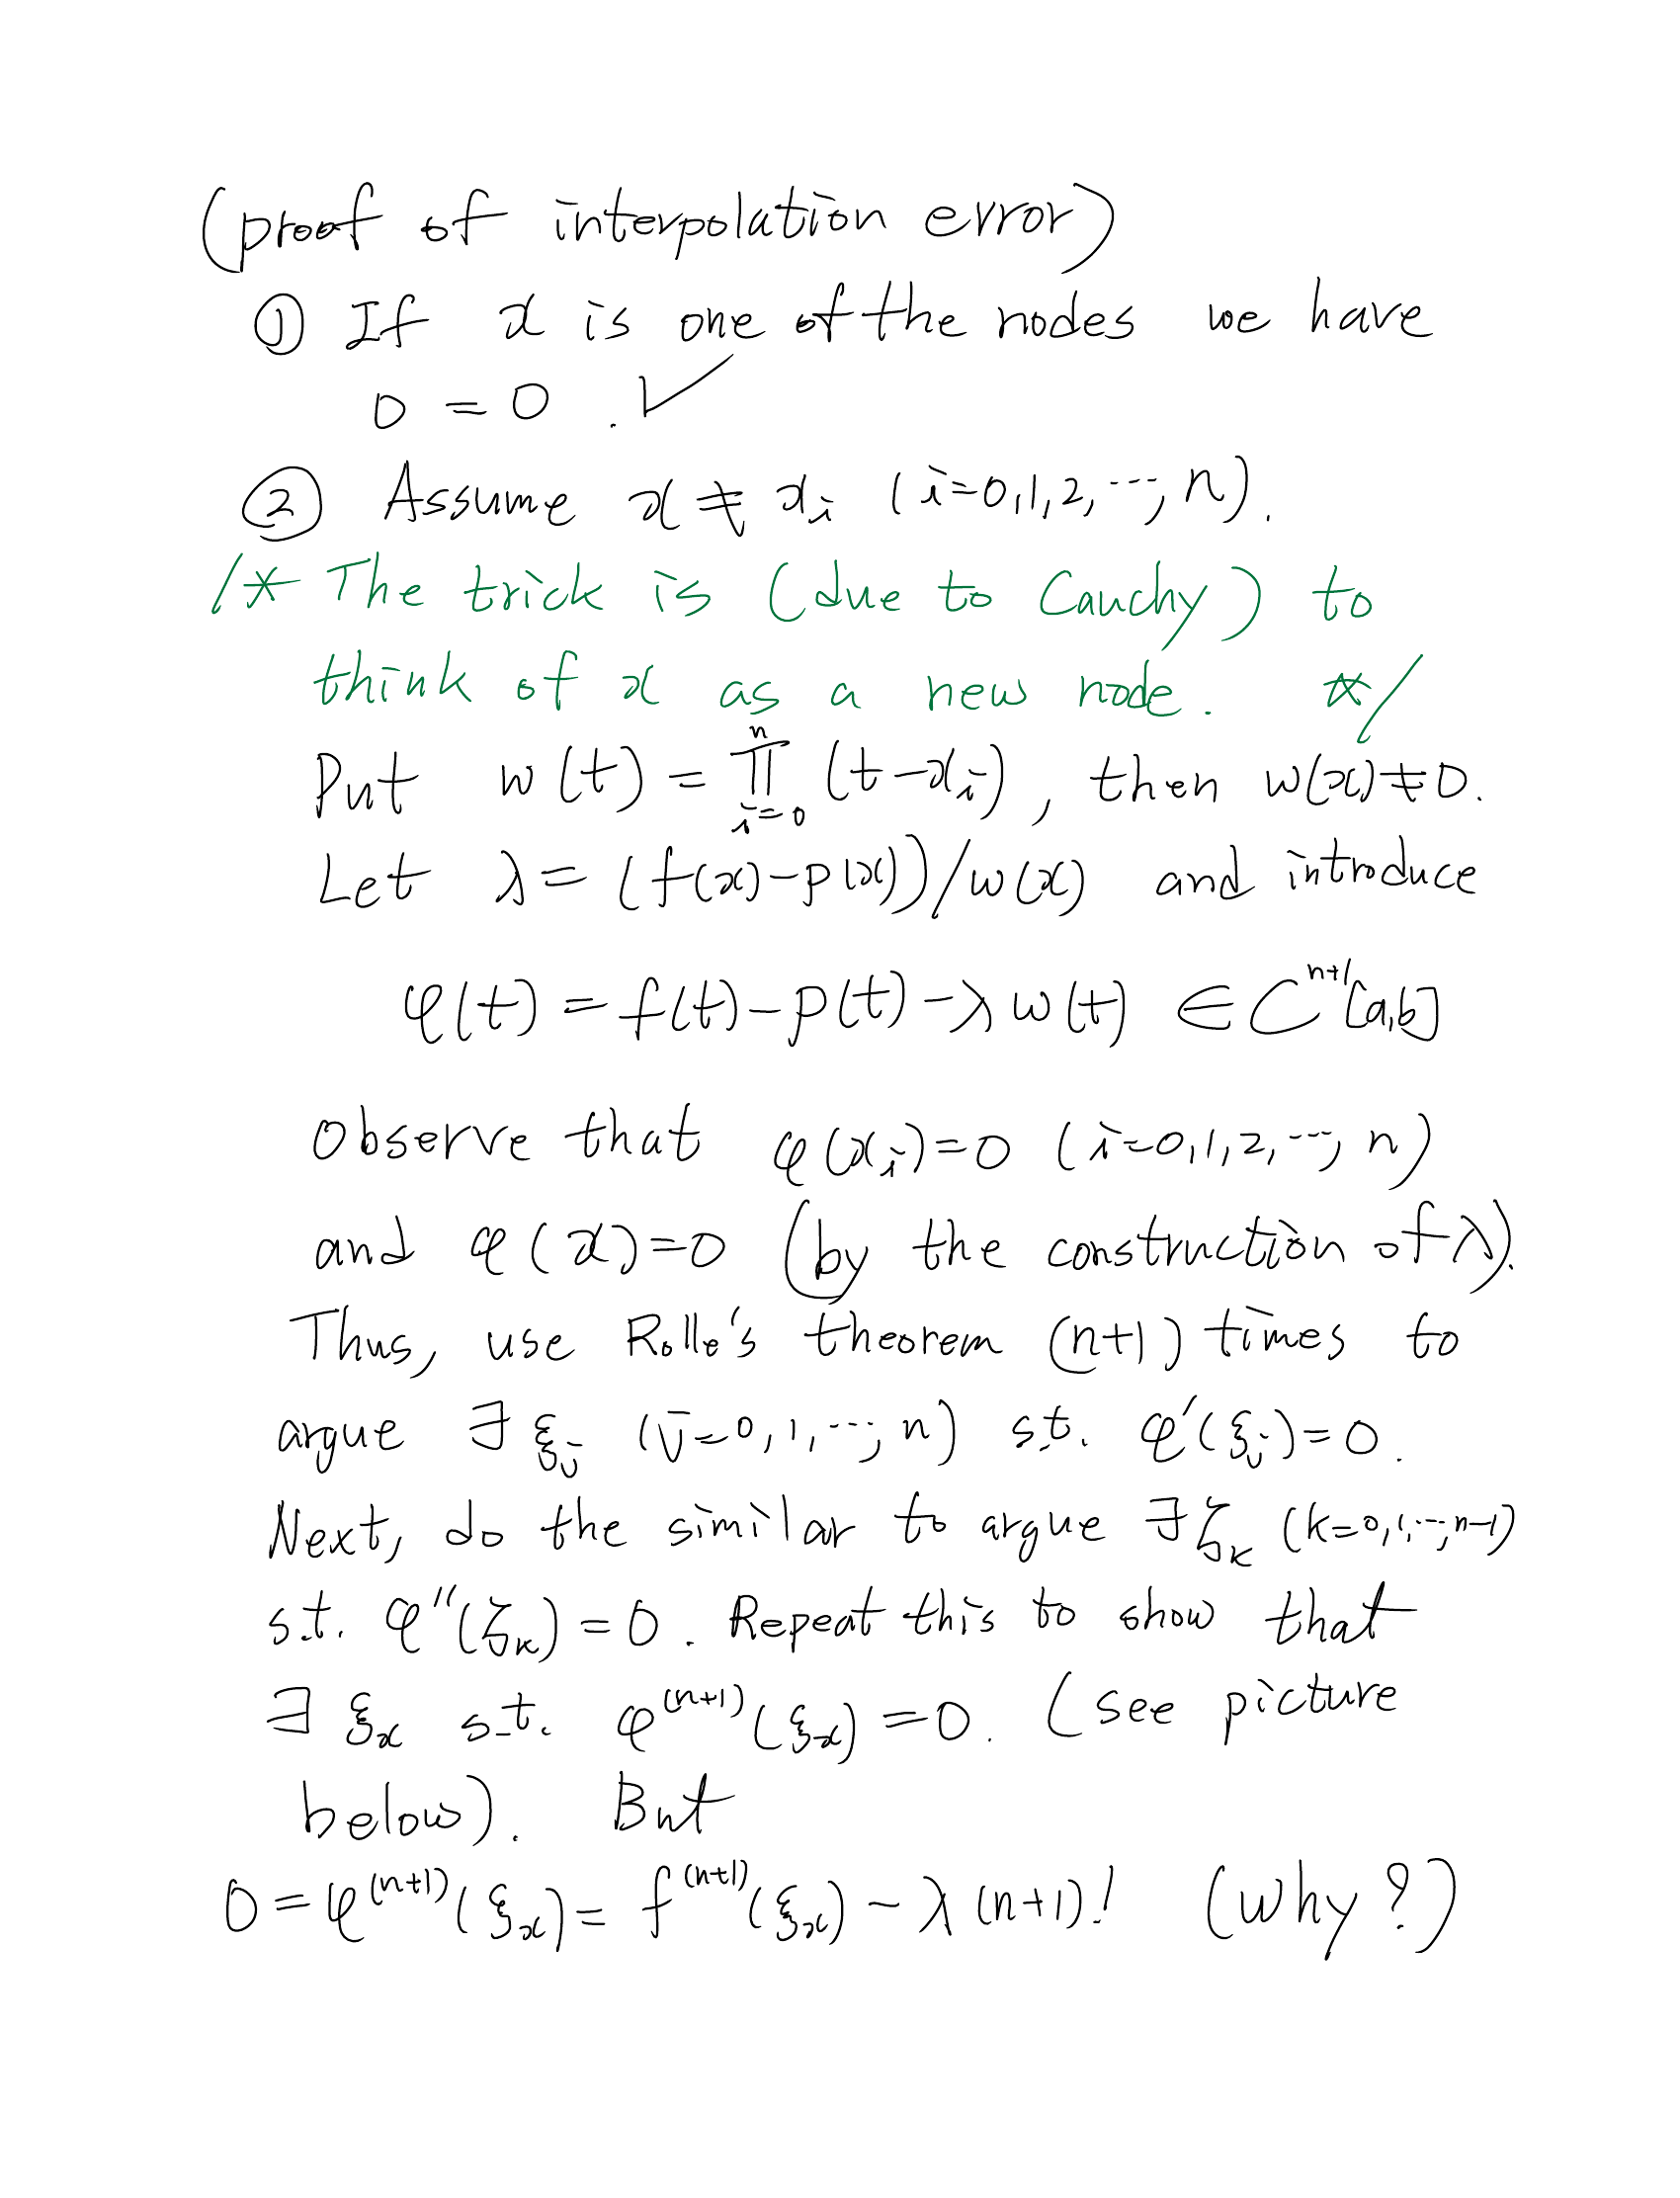 (proof of interpolation error)
① If x is one of the nodes we have
0 = 0 . ✓
② Assume x ≠ xᵢ (i=0,1,2,⋯,n).
/* The trick is (due to Cauchy) to
think of x as a new node. */
Put w(t) = ∏_{i=0}^{n} (t-xᵢ), then w(x)≠0.
Let λ = (f(x)-p(x))/w(x) and introduce
φ(t) = f(t)-p(t)-λw(t) ∈ C^{n+1}[a,b]
Observe that φ(xᵢ)=0 (i=0,1,2,⋯,n)
and φ(x)=0 (by the construction of λ).
Thus, use Rolle's theorem (n+1) times to
argue ∃ ξⱼ (j=0,1,⋯,n) s.t. φ'(ξⱼ)=0.
Next, do the similar to argue ∃ ζₖ (k=0,1,⋯,n-1)
s.t. φ''(ζₖ) = 0. Repeat this to show that
∃ ξₓ s.t. φ^{(n+1)}(ξₓ) = 0. (see picture
below). But
0 = φ^{(n+1)}(ξₓ) = f^{(n+1)}(ξₓ) - λ (n+1)! (why?)